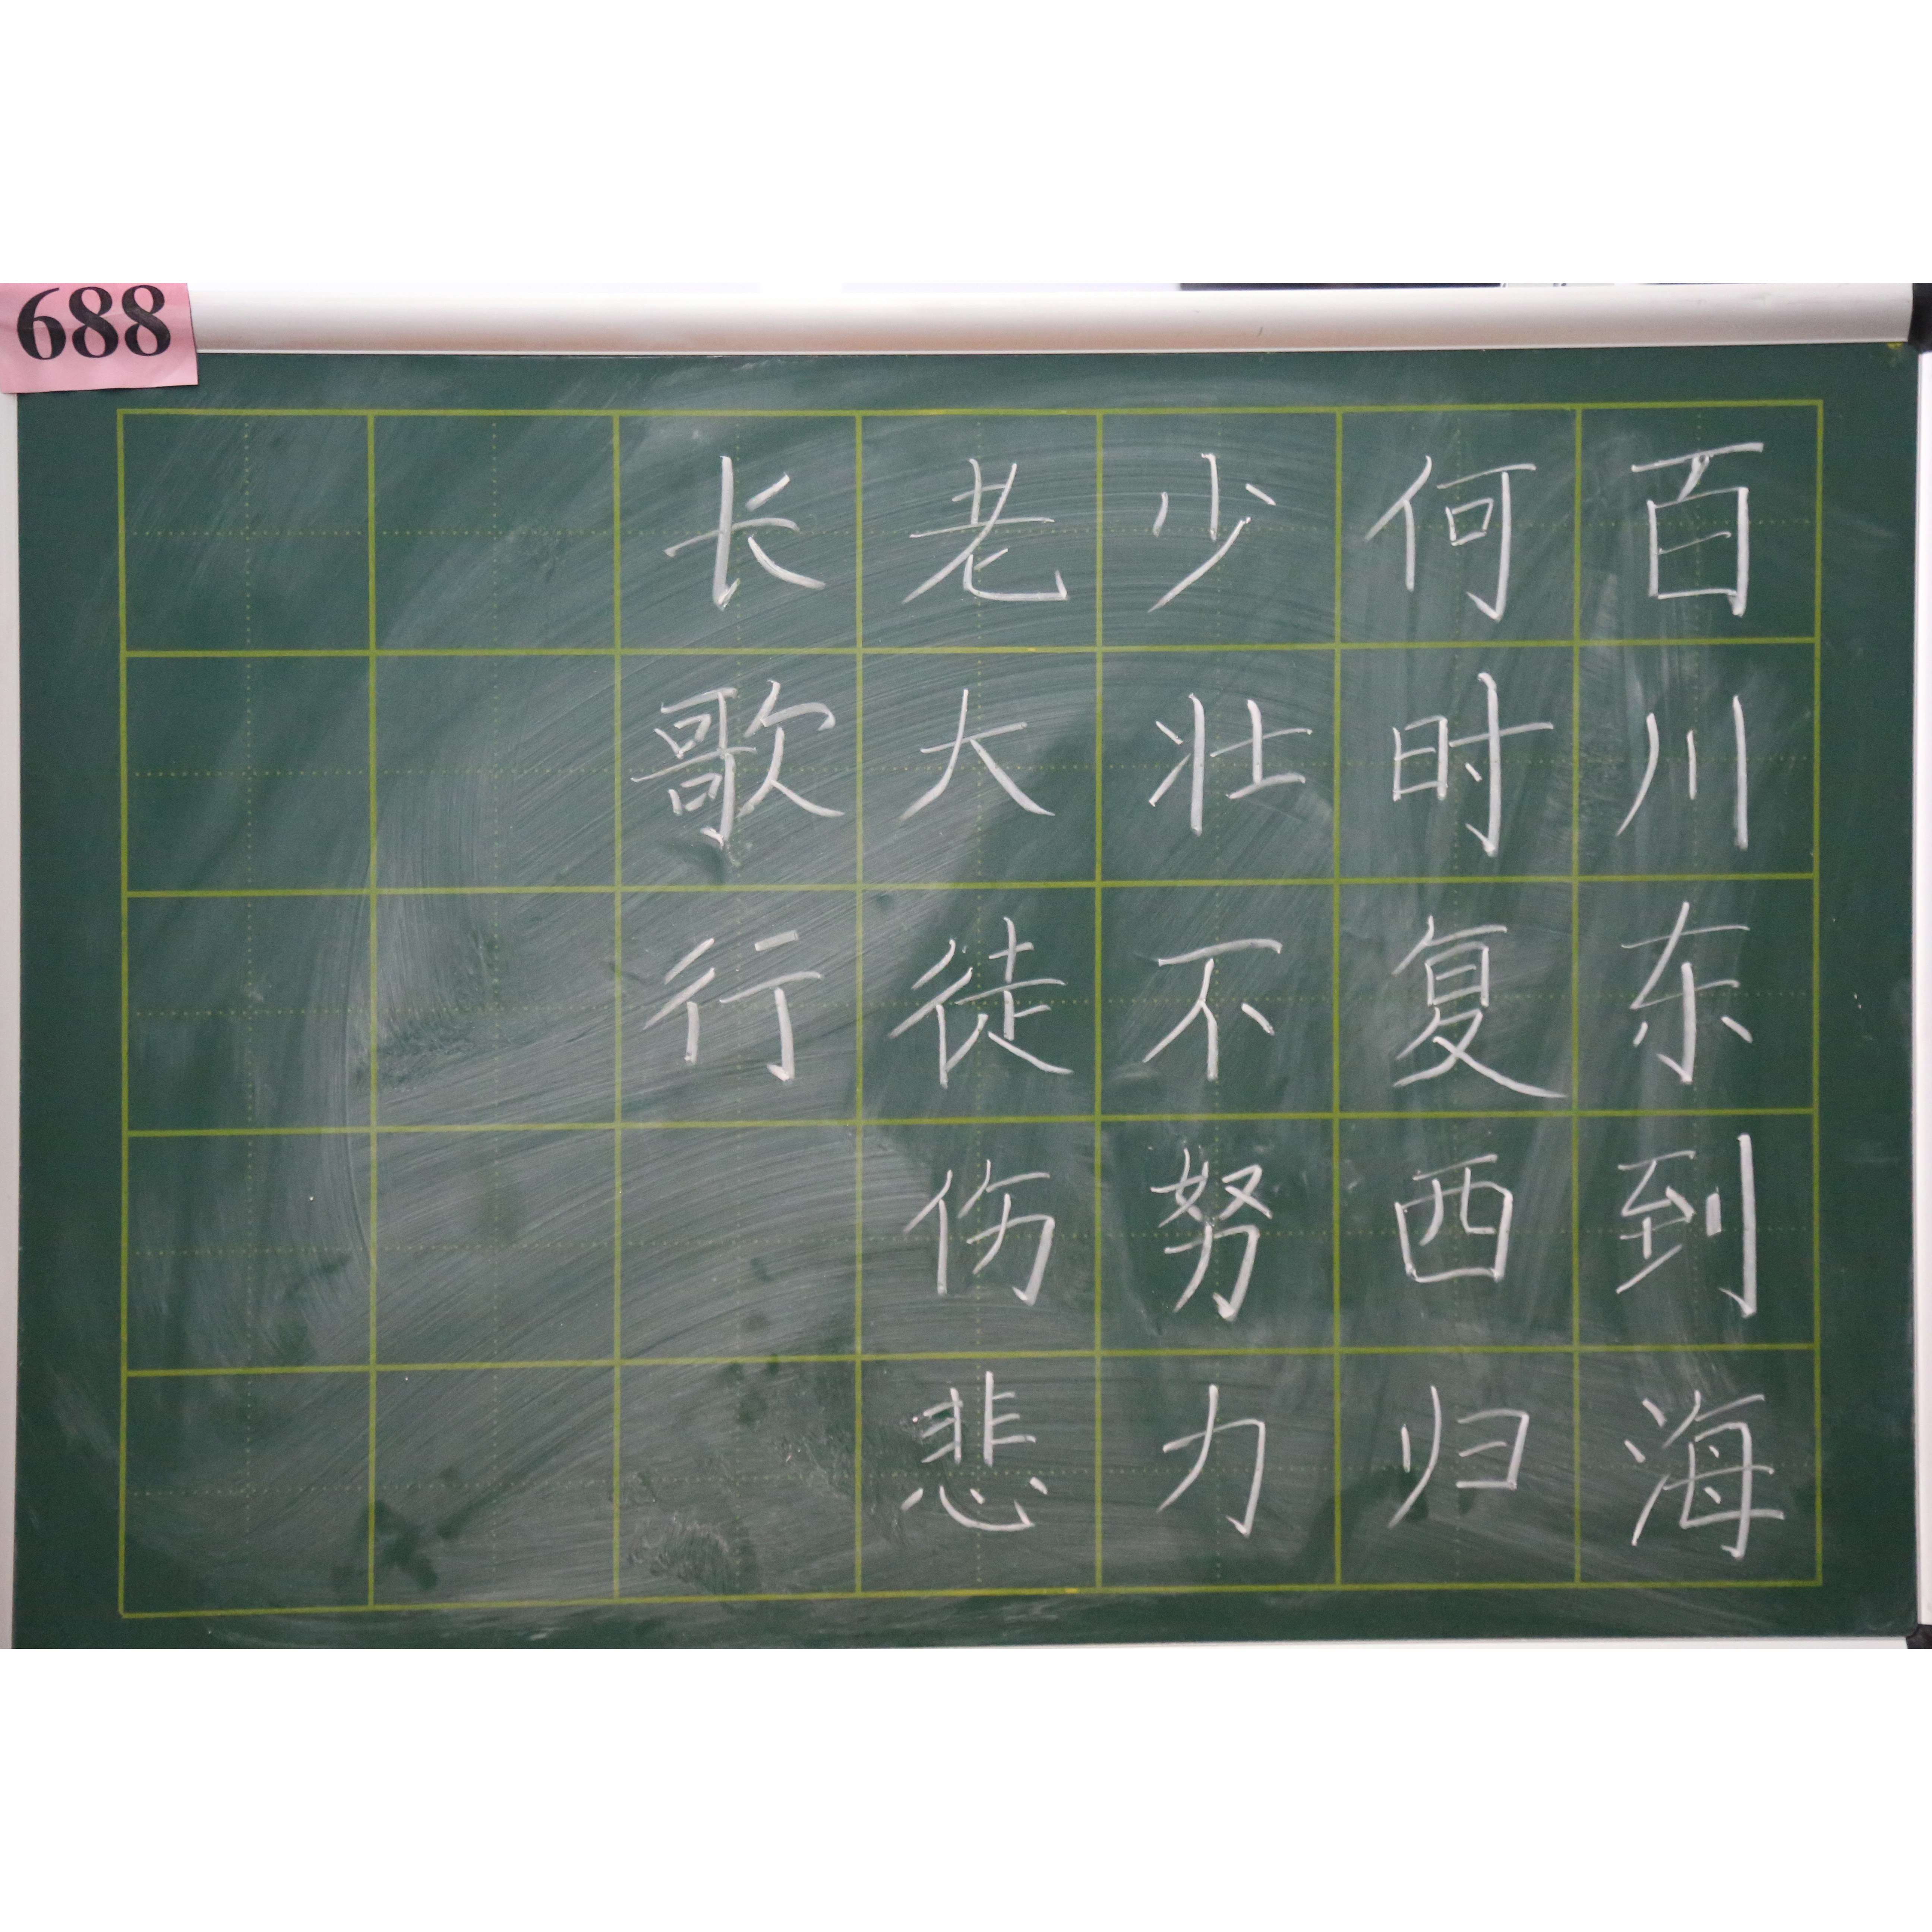 688
百川东到海
何时复西归
少壮不努力
老大徒伤悲
长歌行